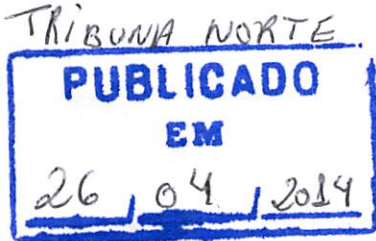 TRIBUNA NORTE
PUBLICADO
EM
26 / 04 / 2014